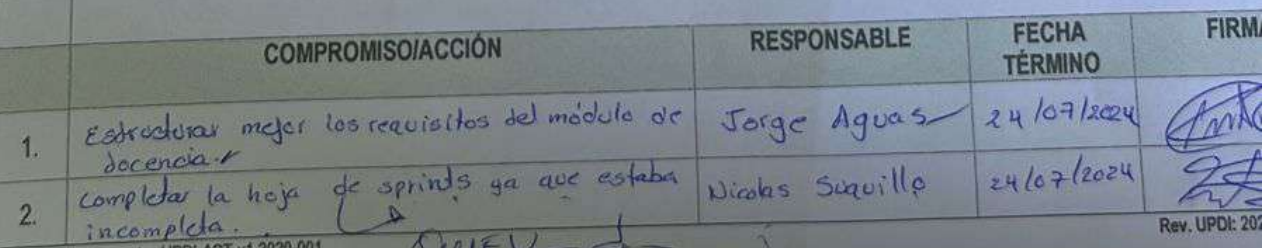 COMPROMISO/ACCIÓN RESPONSABLE FECHA TÉRMINO FIRMA
1. Estructurar mejor los requisitos del módulo de Jorge Aguas 24/07/2024
docencia.
2. completar la hoja de sprints ya que estaba Nicolas Suquillo 24/07/2024
incompleta.
Rev. UPDI: 202